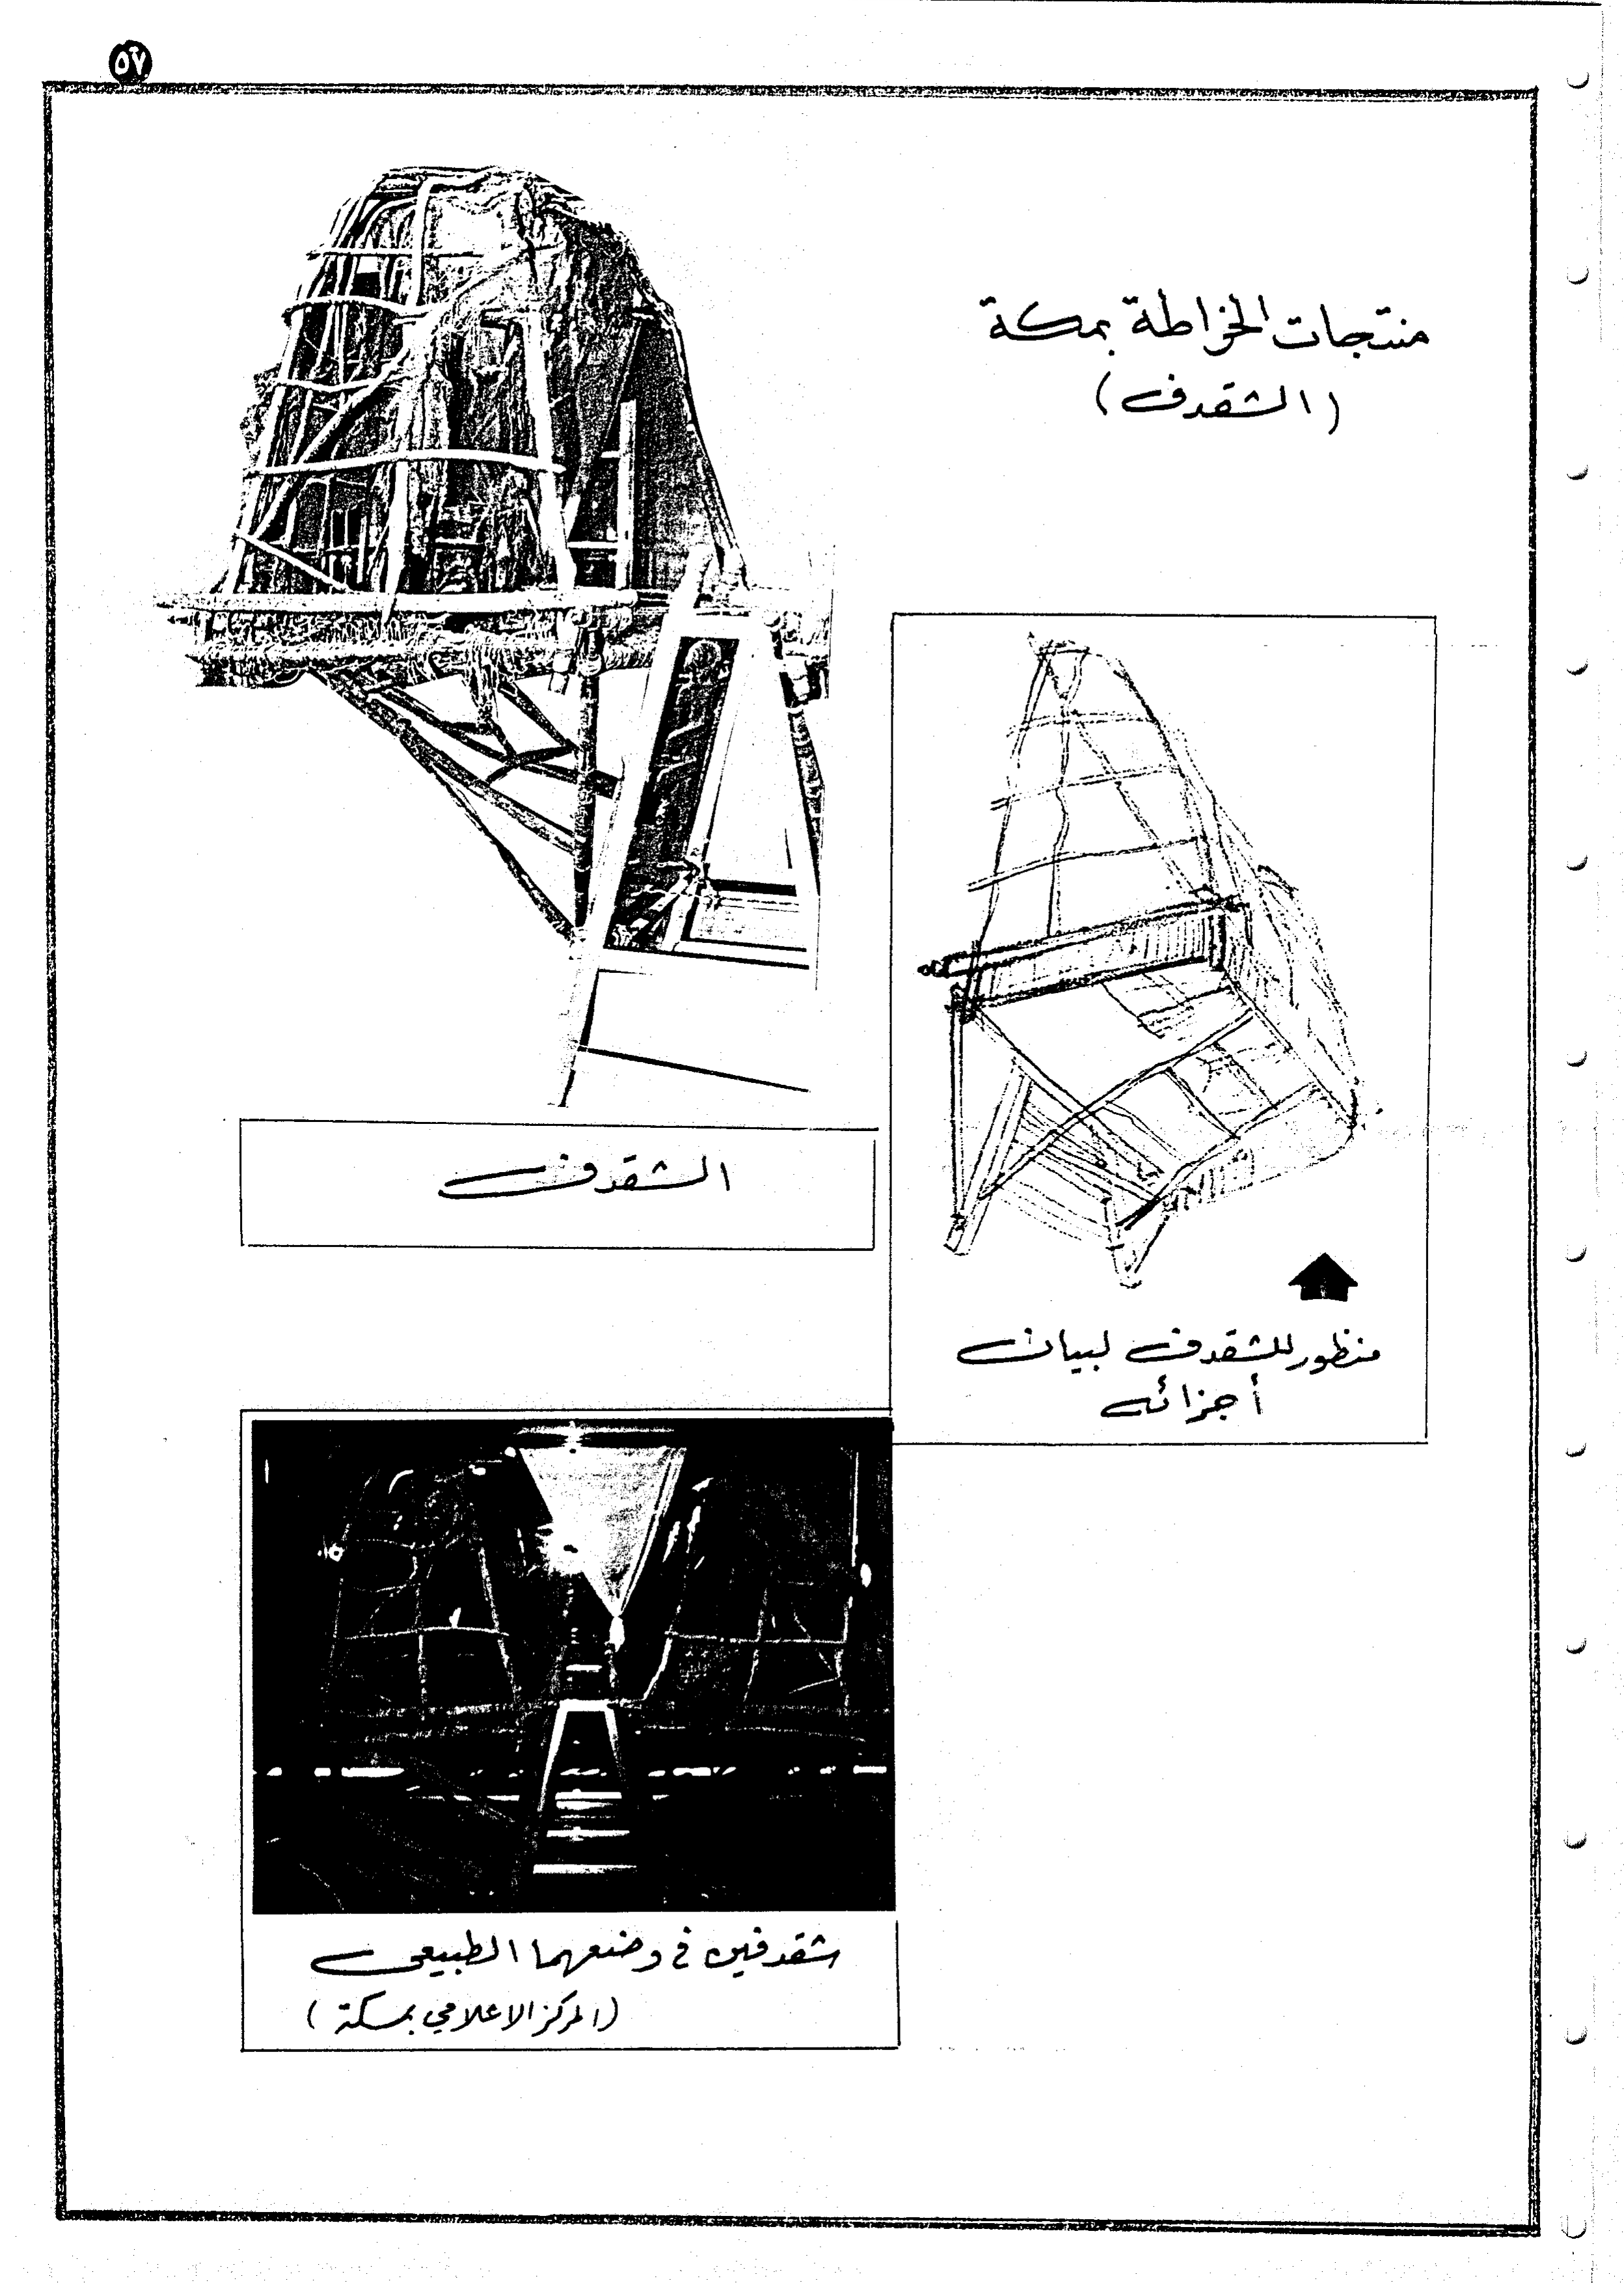 ٥٧
منتجات الخراطة بمكة
(الشقدف)
الشقدف
منظور للشقدف لبيان
أجزائه
شقدفين في وضعهما الطبيعي
(المركز الاعلامي بمكة)